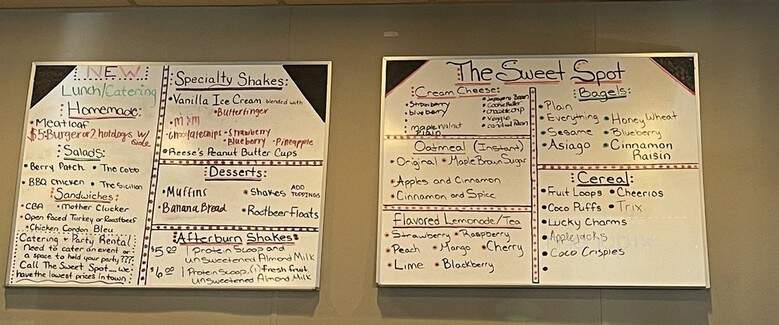 NEW
Lunch/Catering
Homemade:
• Meatloaf
$5: Burger or 2 hotdogs w/
side
Salads:
• Berry Patch • The Cobb
• BBQ Chicken • The Sicilian
Sandwiches:
• CBA • Mother Clucker
• Open Faced Turkey or Roastbeef
• Chicken Cordon Bleu
Catering & Party Rental
Need to cater an event or
a space to hold your party???
Call The Sweet Spot... We
have the lowest prices in town
Specialty Shakes:
• Vanilla Ice Cream blended with
• Butterfinger
• M&M
• Strawberry
Blueberry • Pineapple
• Reese's Peanut Butter Cups
Desserts:
• Muffins • Shakes ADD
TOPPINGS
• Banana Bread • Rootbeer floats
Afterburn Shakes:
$5.00 1 Protein Scoop and
unsweetened Almond Milk
$6.00 1 Protein Scoop, (1) fresh fruit
unsweetened Almond Milk
The Sweet Spot
Cream Cheese:
• Strawberry
• blueberry
• maple walnut
Plain
• chocolate chip
• Veggie
Oatmeal (Instant)
• Original • Maple Brown Sugar
• Apples and Cinnamon
• Cinnamon and Spice
Flavored Lemonade/Tea
• Strawberry • Raspberry
• Peach • Mango • Cherry
• Lime • Blackberry
Bagels:
• Plain
• Everything • Honey Wheat
• Sesame • Blueberry
• Asiago • Cinnamon
Raisin
Cereal:
• Fruit Loops • Cheerios
• Coco Puffs • Trix
• Lucky Charms
• Applejacks
• Coco Crispies
•